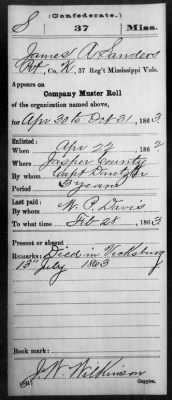 (Confederate.)
S 37 Miss.
James A Sanders
Pvt, Co. K, 37 Reg't Mississippi Vols.
Appears on
Company Muster Roll
of the organization named above,
for Apr 30 to Oct 31, 1863
Enlisted:
When Apr 22, 1862
Where Jasper County
By whom Capt
Period 3 years
Last paid:
By whom W. P. Davis
To what time Feb 28, 1863
Present or absent
Remarks: Died in Vicksburg
13th July 1863
Book mark:
J. W. Wilkinson
Copyist.